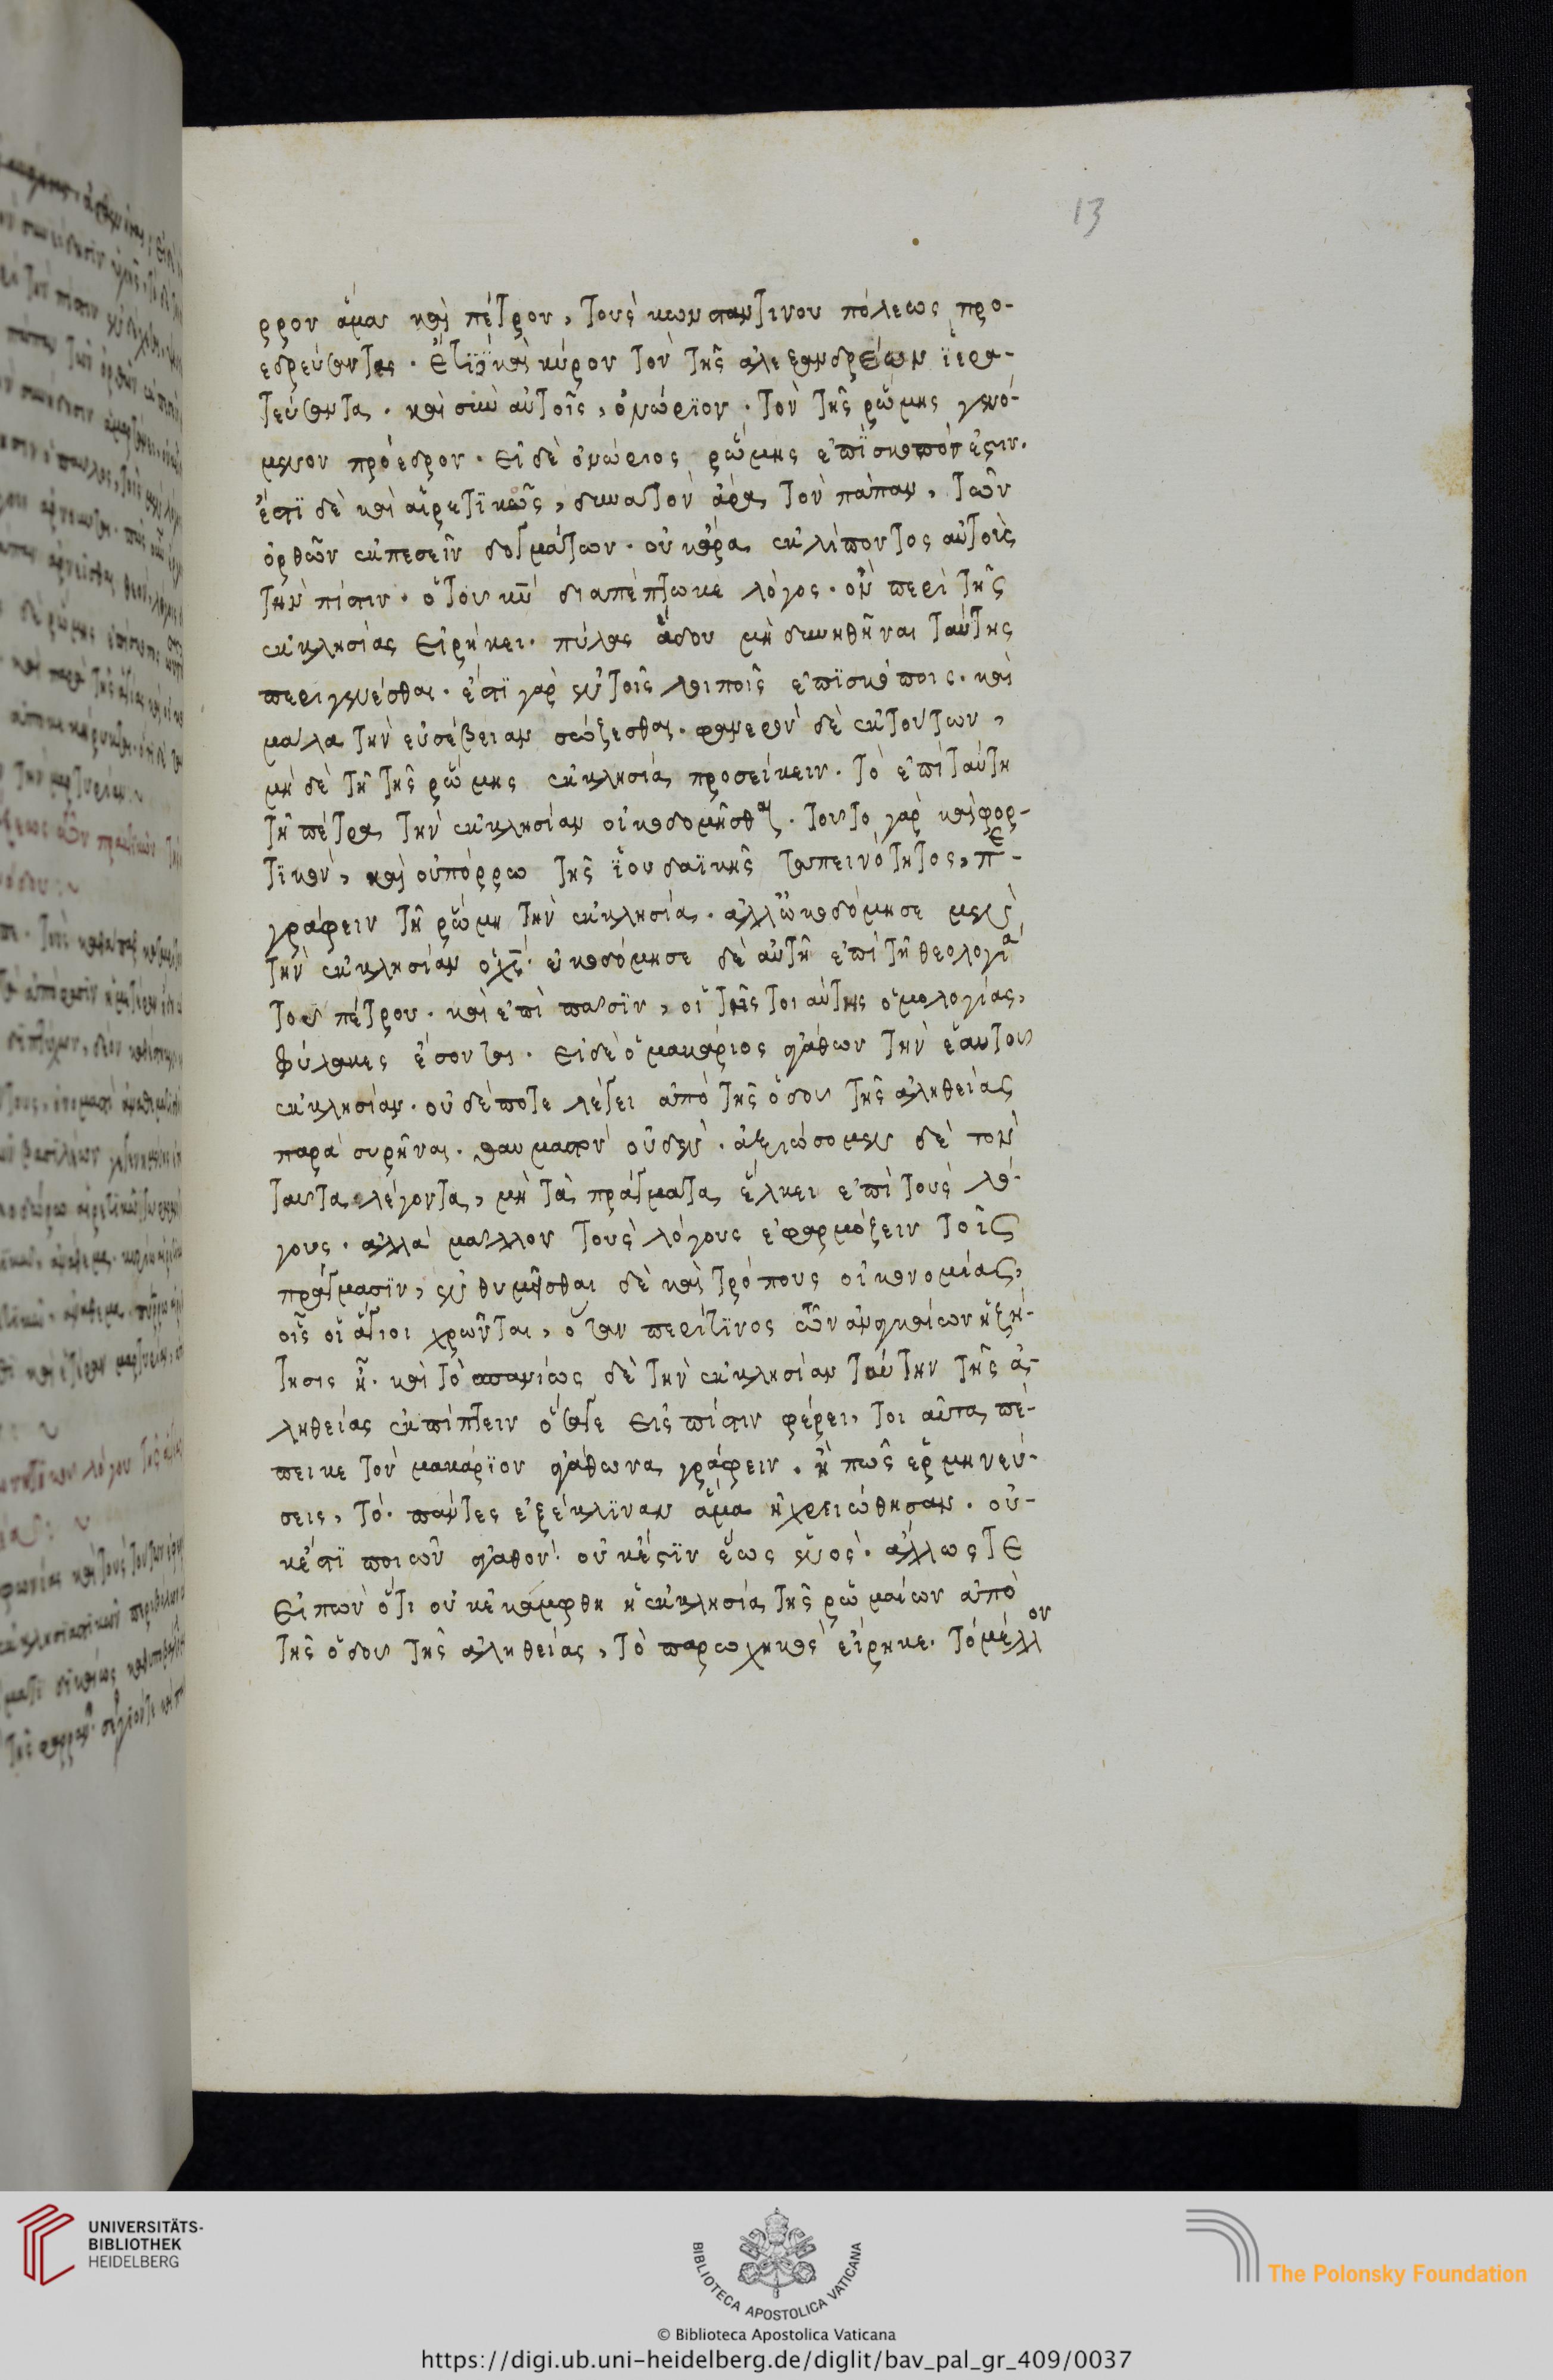 13
ρρον ἅμα καὶ πέτρον, τοὺς κωνσταντινου πόλεως προ-
εδρεύσαντας. ἔτι καὶ κύρον τὸν τῆς ἀλεξανδρέων ἱερα-
τεύσαντα. καὶ σὺν αὐτοῖς, ὀνώριον. τὸν τῆς ῥώμης γενό-
μενον πρόεδρον. εἰ δὲ ὀνώριος ῥώμης ἐπίσκοπός ἐστιν.
ἔστι δὲ καὶ αἱρετικῶς, δυνατὸν ἄρα τὸν πάπαν, τῶν
ὀρθῶν ἐκπεσεῖν δογμάτων. οὐκ ἄρα ἐκλίποντος αὐτοὺς
τὴν πίστιν. ὁ τοῦ κυ διαπέπτωκε λόγος. ὃν περὶ τῆς
ἐκκλησίας εἰρήκει. πύλας ἅδου μὴ δυνηθῆναι ταύτης
περιγενέσθαι. ἔστι γὰρ ἐν τοῖς λοιποῖς ἐπισκόποις. καὶ
μάλα τὴν εὐσέβειαν σώζεσθαι. φανερὸν δὲ ἐκ τούτων,
μὴ δὲ τῇ τῆς ῥώμης ἐκκλησία προσείκειν. τὸ ἐπὶ ταύτη
τῇ πέτρα τὴν ἐκκλησίαν οἰκοδομῆσθαι. τοῦτο γὰρ καὶ φορ-
τικὸν, καὶ οὐ πόρρω τῆς ἰουδαϊκῆς ταπεινότητος, πε-
γράφειν τῇ ῥώμη τὴν ἐκκλησία. ἀλλ' ὠκοδόμησε μὲν
τὴν ἐκκλησίαν ὁ χς. ὠκοδόμησε δὲ αὐτὴ ἐπὶ τῇ θεολογία
τοῦ πέτρου. καὶ ἐπὶ πᾶσιν, οἳ τῆς τοιαύτης ὁμολογίας,
φύλακες ἔσονται. εἰ δὲ ὁ μακάριος ἀγάθων τὴν ἑαυτοῦ
ἐκκλησίαν. οὐδέποτε λέγει ἀπὸ τῆς ὁδοῦ τῆς ἀληθείας
παρὰ συρῆναι. θαυμαστὸν οὐδὲν. ἀξιώσομεν δὲ τὸν
ταῦτα λέγοντα, μὴ τὰ πράγματα ἕλκει ἐπὶ τοὺς λό-
γους. ἀλλὰ μᾶλλον τοὺς λόγους ἐφαρμόζειν τοῖς
πράγμασιν, ἐνθυμῆσθαι δὲ καὶ τρόπους οἰκονομίας,
οἷς οἱ ἅγιοι χρῶνται, ὅταν περί τινος τῶν ἀναγκαίων ἡ ζή-
τησις ᾖ. καὶ τὸ σπανίως δὲ τὴν ἐκκλησίαν ταύτην τῆς ἀ-
ληθείας ἐκπίπτειν ὅσα γε εἰς πίστιν φέρει, τοιαῦτα πέ-
πεικε τὸν μακάριον ἀγάθωνα γράφειν. ἢ πῶς ἑρμηνεύ-
σεις, τό. πάντες ἐξέκλιναν ἅμα ἠχρειώθησαν. οὐ-
κέστι ποιῶν ἀγαθόν. οὐκ ἔστιν ἕως ἑνός. ἄλλως τε
εἰπὼν ὅτι οὐκ ἐκάμφθη ἡ ἐκκλησία τῆς ῥωμαίων ἀπὸ
τῆς ὁδοῦ τῆς ἀληθείας, τὸ παρωχηκὸς εἴρηκε. τὸ μέλλον
UNIVERSITÄTS-
BIBLIOTHEK
HEIDELBERG
BIBLIOTECA APOSTOLICA VATICANA
The Polonsky Foundation
© Biblioteca Apostolica Vaticana
https://digi.ub.uni-heidelberg.de/diglit/bav_pal_gr_409/0037